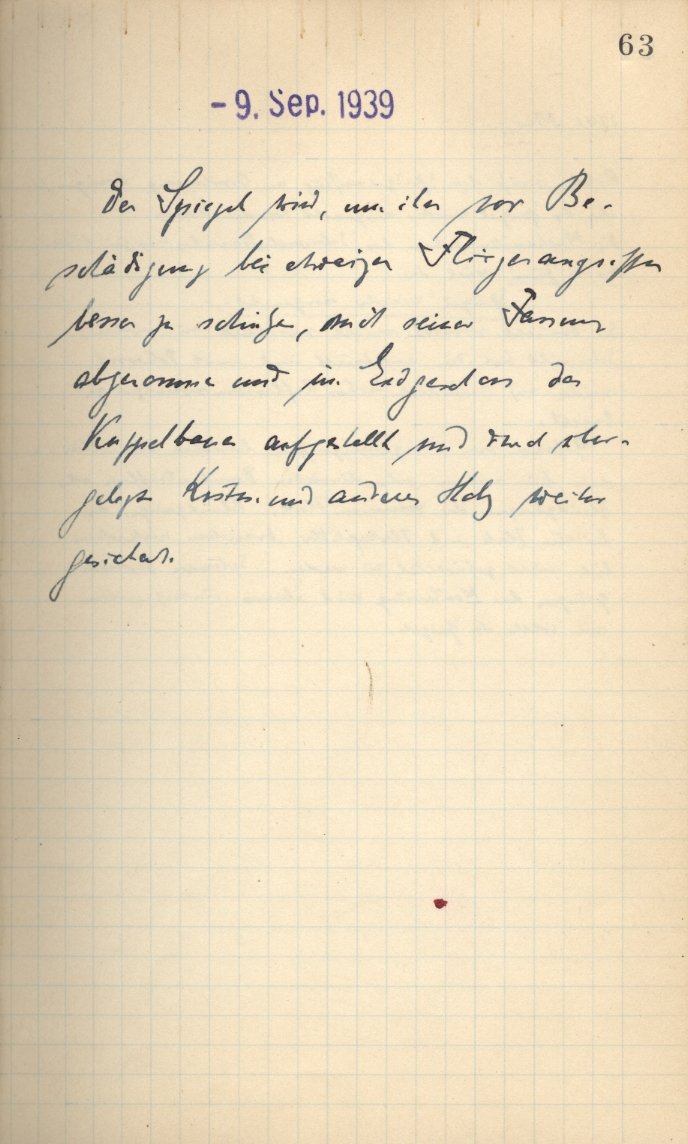 63
- 9. Sep. 1939
Der Spiegel wird, um ihn vor Be-
schädigung bei etwaigen Fliegerangriffen
besser zu schützen, mit seiner Fassung
abgenommen und im Erdgeschoss des
Kuppelbaues aufgestellt und durch über-
gelegte Kisten und anderes Holz weiter
gesichert.